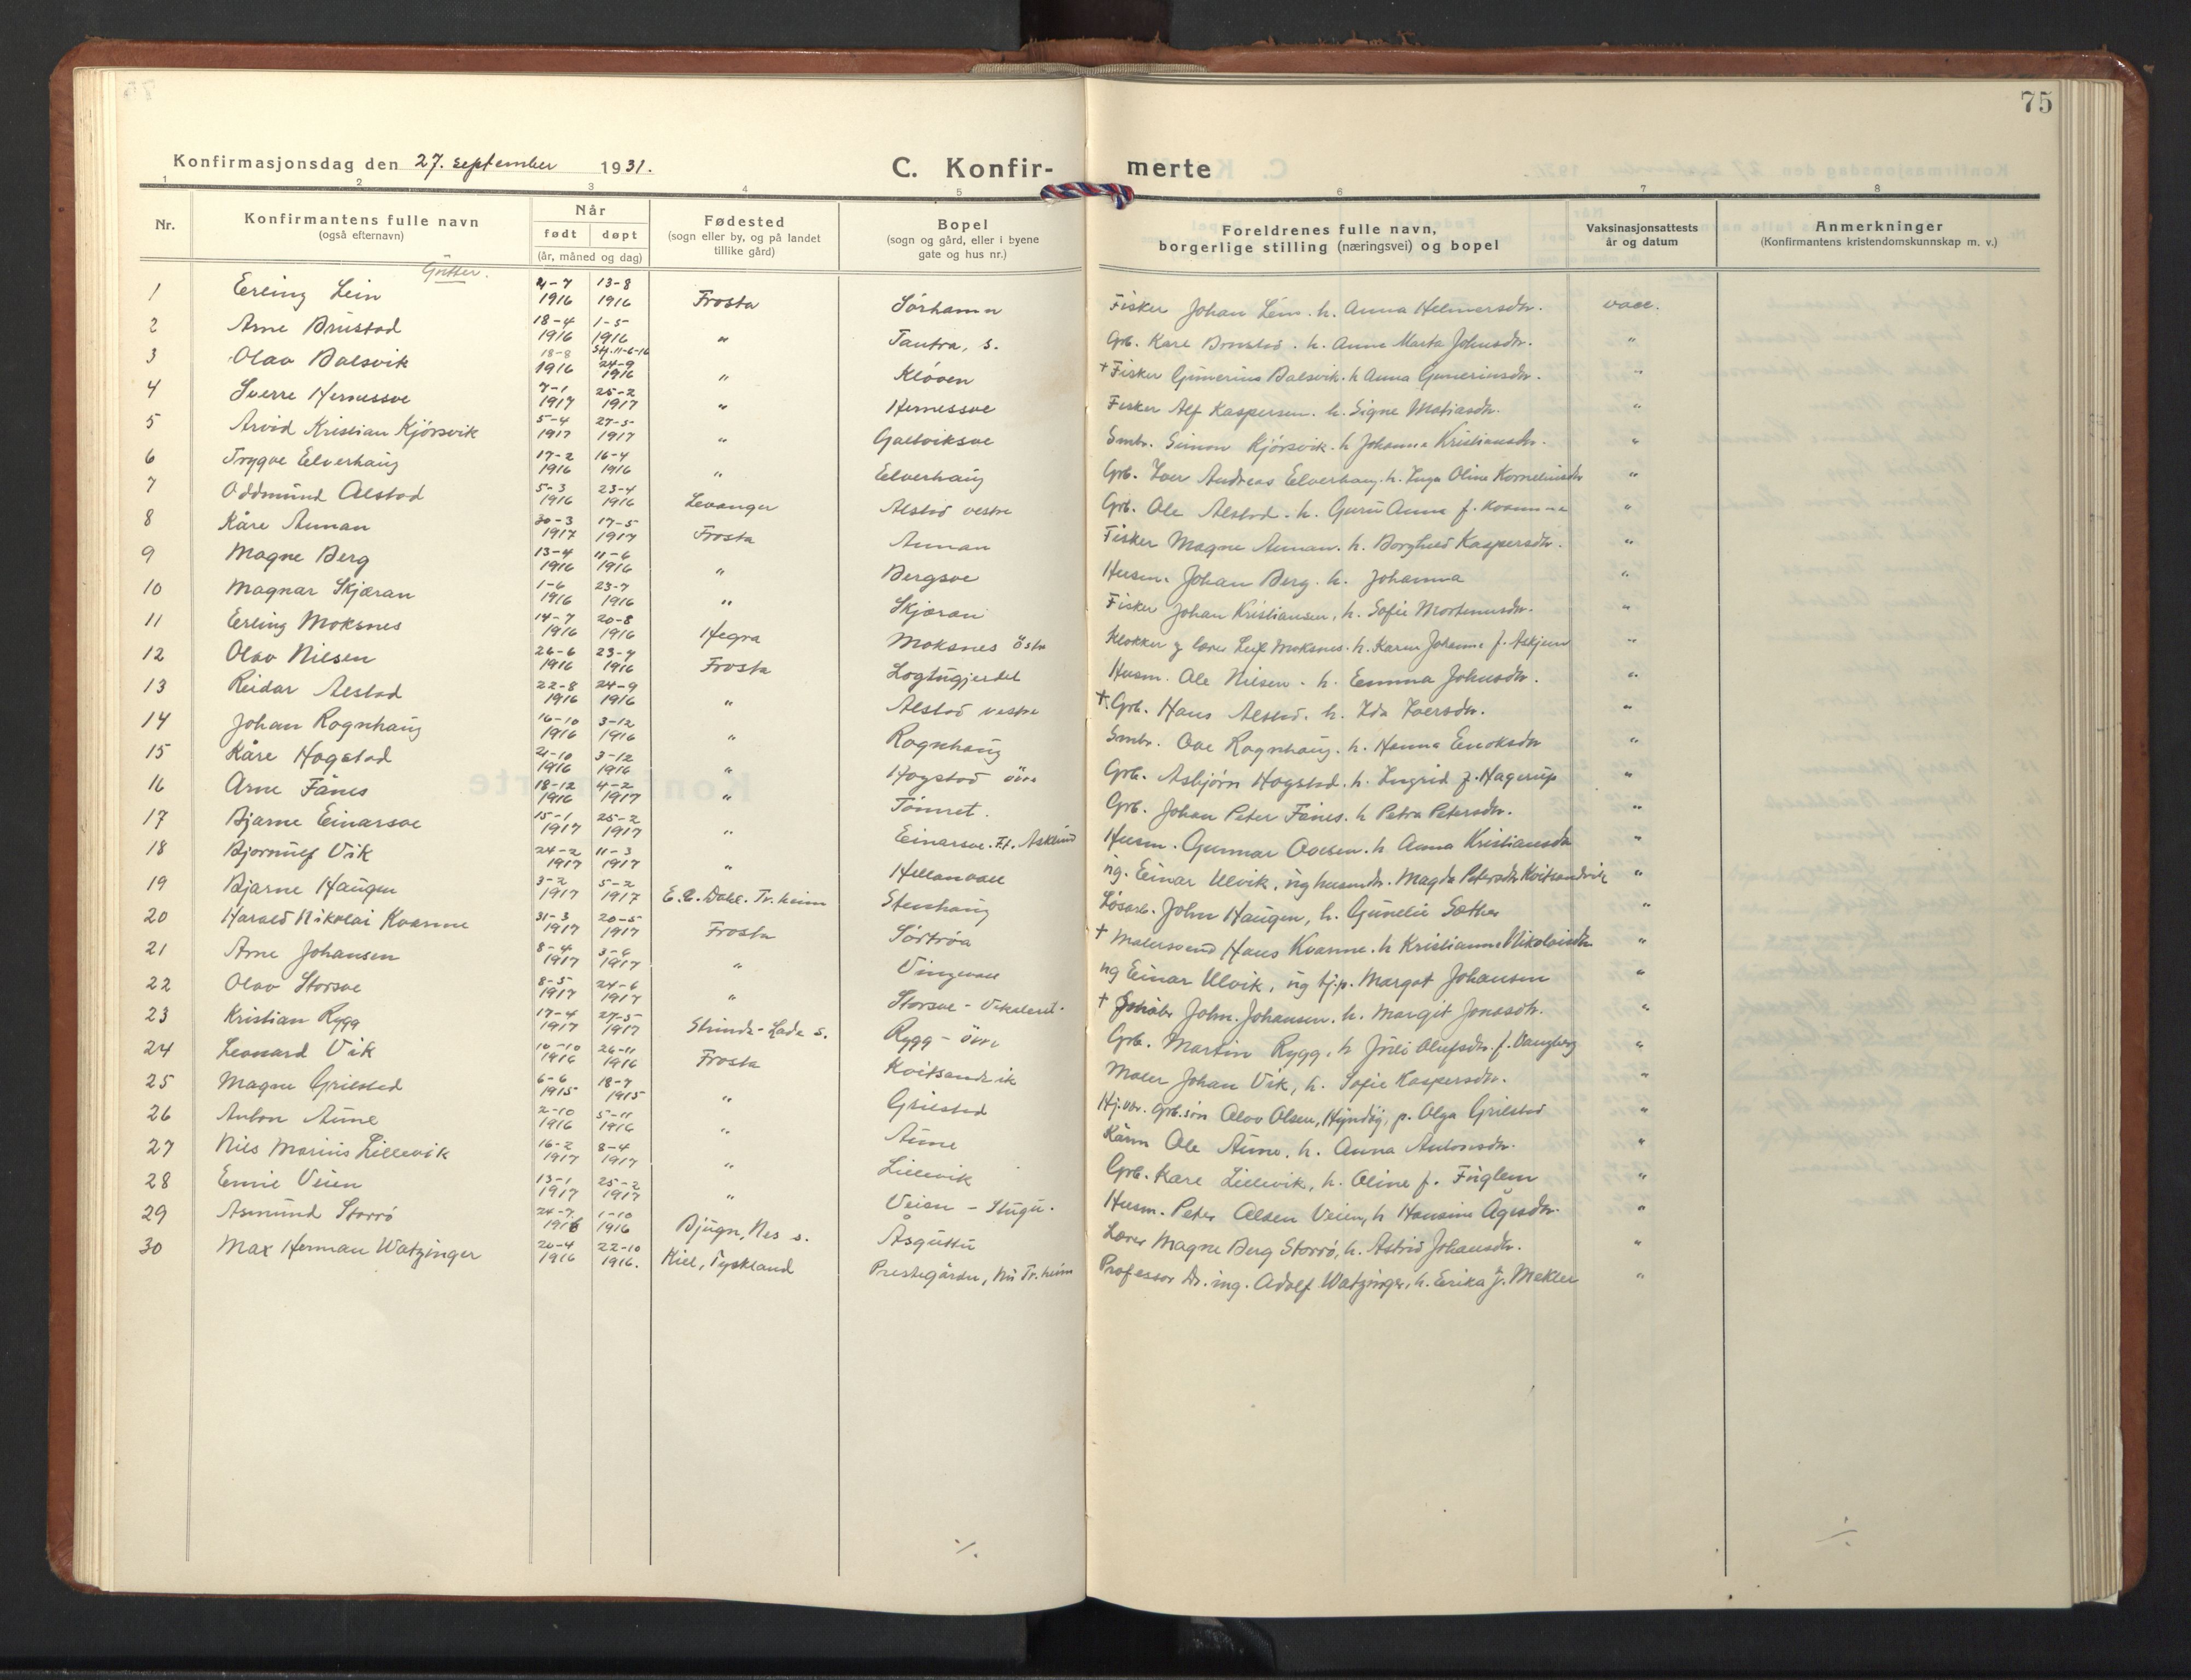 75
Konfirmasjonsdag den 27. september 1931.
C. Konfir-merte
1 2 3 4 5 6 7 8
Nr. Konfirmantens fulle navn (også efternavn) Når født døpt (år, måned og dag) Fødested (sogn eller by, og på landet tillike gård) Bopel (sogn og gård, eller i byene gate og hus nr.) Foreldrenes fulle navn, borgerlige stilling (næringsvei) og bopel Vaksinasjonsattests år og datum Anmerkninger (Konfirmantens kristendomskunnskap m. v.)
Gutter.
1 Erling Lein 4-7 1916 13-8 1916 Frosta Sørhamn Fisker Johan Lein. h. Anna Helmersdtr. vacc.
2 Arne Brustad 18-4 1916 1-5 1916 " Tautra, s. Grb. Kare Brustad. h. Anna Marta Johnsdtr. "
3 Olav Balsvik 18-8 1916 Stf. 11-6-16 24-9 1916 " Kløven + Fisker Gunerius Balsvik. h Anna Guneriusdtr. "
4 Sverre Hernessve 7-1 1917 25-2 1917 " Hernessve Fisker Alf Kaspersen. h. Signe Matiasdtr. "
5 Arvid Kristian Kjörsvik 5-4 1917 27-5 1917 " Galtviksve Smbr. Simon Kjörsvik. h Johanna Kristiansdtr. "
6 Trygve Elverhaug 17-2 1916 16-4 1916 " Elverhaug Grb. Iver Andreas Elverhaug. h. Inga Oline Korneliusdtr "
7 Oddmund Alstad 5-3 1916 23-4 1916 Levanger Alstad vestre Grb. Ole Alstad. h. Guru Anna f. Kvamme "
8 Kåre Aunan 30-3 1917 17-5 1917 Frosta Aunan Fisker Magne Aunan. h. Borghild Kaspersdtr. "
9 Magne Berg 13-4 1916 11-6 1916 " Bergsve Husm. Johan Berg. h. Johanna "
10 Magnar Skjæran 1-6 1916 23-7 1916 " Skjæran Fisker Johan Kristiansen, h. Sofie Mortensdtr. "
11 Erling Moksnes 14-7 1916 20-8 1916 Hegra Moksnes östr Klokker g lærer Leif Moksnes. h. Karen Johanne f. Askjem "
12 Olav Nilsen 26-6 1916 23-7 1916 Frosta Logtugjerdet Husm. Ole Nilsen. h. Emma Johnsdtr. "
13 Reidar Alstad 22-8 1916 24-9 1916 " Alstad vestre + Grb. Hans Alstad. h. Ida Iversdtr. "
14 Johan Rognhaug 16-10 1916 3-12 1916 " Rognhaug Smbr. Ole Rognhaug. h. Hanna Enoksdtr "
15 Kåre Hogstad 21-10 1916 3-12 1916 " Hogstad övre Grb. Asbjörn Hogstad. h. Ingrid f. Hagerup "
16 Arne Fånes 18-12 1916 4-2 1917 " Tömret. Grb. Johan Peter Fånes. h Petra Petersdtr. "
17 Bjarne Einarsve 15-1 1917 25-2 1917 " Einarsve. Husm. Gunnar Ovesen. h Anna Kristiansdtr "
18 Bjornulf Vik 24-2 1917 11-3 1917 " Hellanvall ug. Einar Ulvik, ug husmdtr. Magda Petersdtr Kvitsandvik "
19 Bjarne Haugen 3-2 1917 5-2 1917 E. C. Dahl. Tr.heim Stenhaug Løsarb. John Haugen, h. Gunelie Sæther "
20 Harald Nikolai Kvamme 31-3 1917 20-5 1917 Frosta Sörtröa + Malersvend Hans Kvamme. h Kristianna Nikolaisdtr "
21 Arne Johansen 8-4 1917 3-6 1917 " Vingvall ug Einar Ulvik, ug tj.p. Margot Johansen "
22 Olav Storsve 8-5 1917 24-6 1917 " Storsve - + John. Johansen. h. Margit Jonasdtr. "
23 Kristian Rygg 17-4 1917 27-5 1917 Strinda-Lade s. Rygg - övre Grb. Martin Rygg, h Juli Olufsdtr. f. Vangberg "
24 Leonard Vik 10-10 1916 26-11 1916 Frosta Kvitsandvik Maler Johan Vik, h. Sofie Kaspersdtr. "
25 Magne Grilstad 6-6 1915 18-7 1915 " Grilstad Grb.sön Olav Olsen, Hyndöy, p. Olga Grilstad "
26 Anton Aune 2-10 1916 5-11 1916 " Aune Kårm Ole Aune. h. Anna Antonsdtr. "
27 Nils Marius Lillevik 16-2 1917 8-4 1917 " Lillevik Grb. Kare Lillevik, h. Oline f. Fuglem "
28 Emil Veien 13-1 1917 25-2 1917 " Veien - Stugu. Husm. Peter Olsen Veien, h Hansine Ågesdtr. "
29 Asmund Storrö 24-7 1916 1-10 1916 Bjugn, Nes s. Åsguttu Lærer Magne Berg Storrö, h. Astrid Johansdtr. "
30 Max Herman Watzinger 20-4 1916 22-10 1916. Kiel, Tyskland Prestegården, nu Tr.heim Professor Dr. ing. Adolf Watzinger, h. Erika f. Mekler "